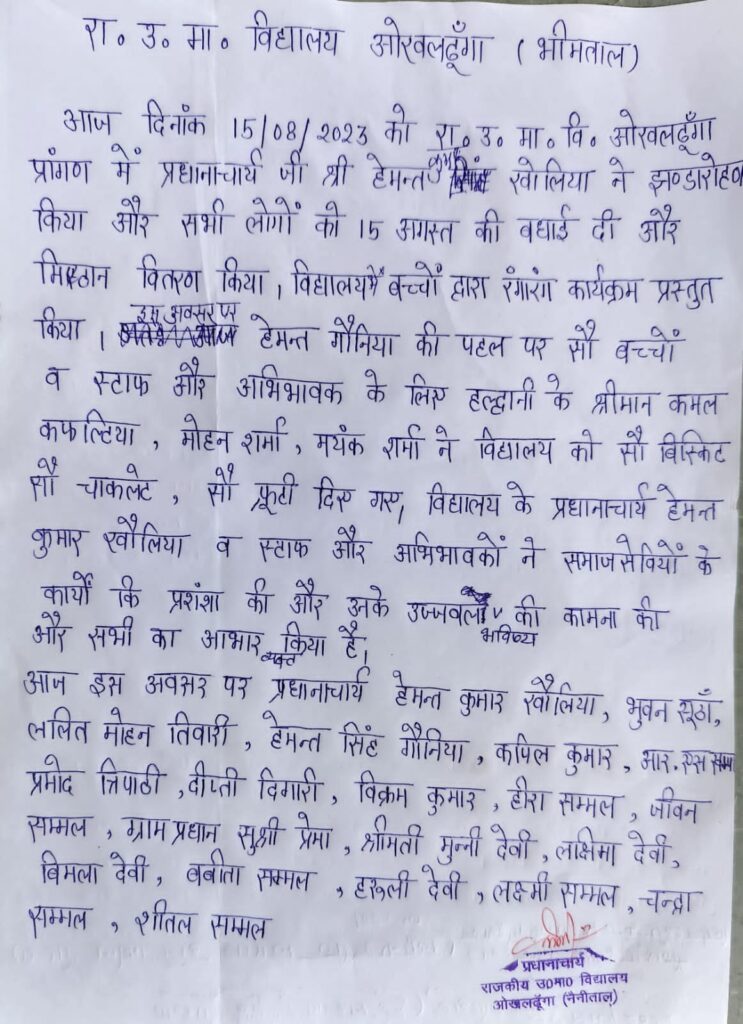 रा. उ. मा. विद्यालय ओखलढूँगा (भीमताल)
आज दिनांक 15/08/2023 को रा. उ. मा. वि. ओखलढूँगा
प्रांगण में प्रधानाचार्य जी श्री हेमन्त कुमार खौलिया ने झण्डारोहण
किया और सभी लोगों को 15 अगस्त की बधाई दी और
मिष्ठान वितरण किया, विद्यालय में बच्चों द्वारा रंगारंग कार्यक्रम प्रस्तुत
किया। इस अवसर पर हेमन्त गौनिया की पहल पर सौ बच्चों
व स्टाफ और अभिभावक के लिए हल्द्वानी के श्रीमान कमल
कफल्टिया, मोहन शर्मा, मयंक शर्मा ने विद्यालय को सौ बिस्किट
सौ चाकलेट, सौ फ्रूटी दिए गए, विद्यालय के प्रधानाचार्य हेमन्त
कुमार खौलिया व स्टाफ और अभिभावकों ने समाजसेवियों के
कार्यों कि प्रशंशा की और उनके उज्जवल भविष्य की कामना की
और सभी का आभार व्यक्त किया है।
आज इस अवसर पर प्रधानाचार्य हेमन्त कुमार खौलिया, भुवन सूठाँ,
ललित मोहन तिवारी, हेमन्त सिंह गौनिया, कपिल कुमार, आर. एस
प्रमोद त्रिपाठी, दीप्ती दिगारी, विक्रम कुमार, हीरा सम्मल, जीवन
सम्मल, ग्राम प्रधान सुश्री प्रेमा, श्रीमती मुन्नी देवी, लक्षिमा देवी,
विमला देवी, बबीता सम्मल, हरूली देवी, लक्ष्मी सम्मल, चन्द्रा
सम्मल, शीतल सम्मल
प्रधानाचार्य
राजकीय उ0मा0 विद्यालय
ओखलढूँगा (नैनीताल)